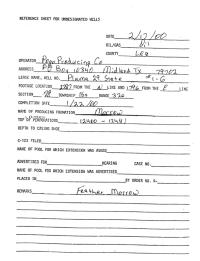 REFERENCE SHEET FOR UNDESIGNATED WELLS
DATE 2/12/00
OIL/GAS
COUNTY Lea
OPERATOR Penn Producing Co
ADDRESS PO Box 10340 Midland Tx 79702
LEASE NAME, WELL NO. State #1-6
FOOTAGE LOCATION FROM THE N LINE AND FROM THE E LINE
SECTION TOWNSHIP RANGE 32e
COMPLETION DATE 1/22/00
NAME OF PRODUCING FORMATION Morrow
TOP OF PERFORATIONS 12400 - 13441
DEPTH TO CASING SHOE
C-123 FILED
NAME OF POOL FOR WHICH EXTENSION WAS ASKED
ADVERTISED FOR HEARING CASE NO.
NAME OF POOL FOR WHICH EXTENSION WAS ADVERTISED
PLACED IN BY ORDER NO. R-
REMARKS Feather Morrow